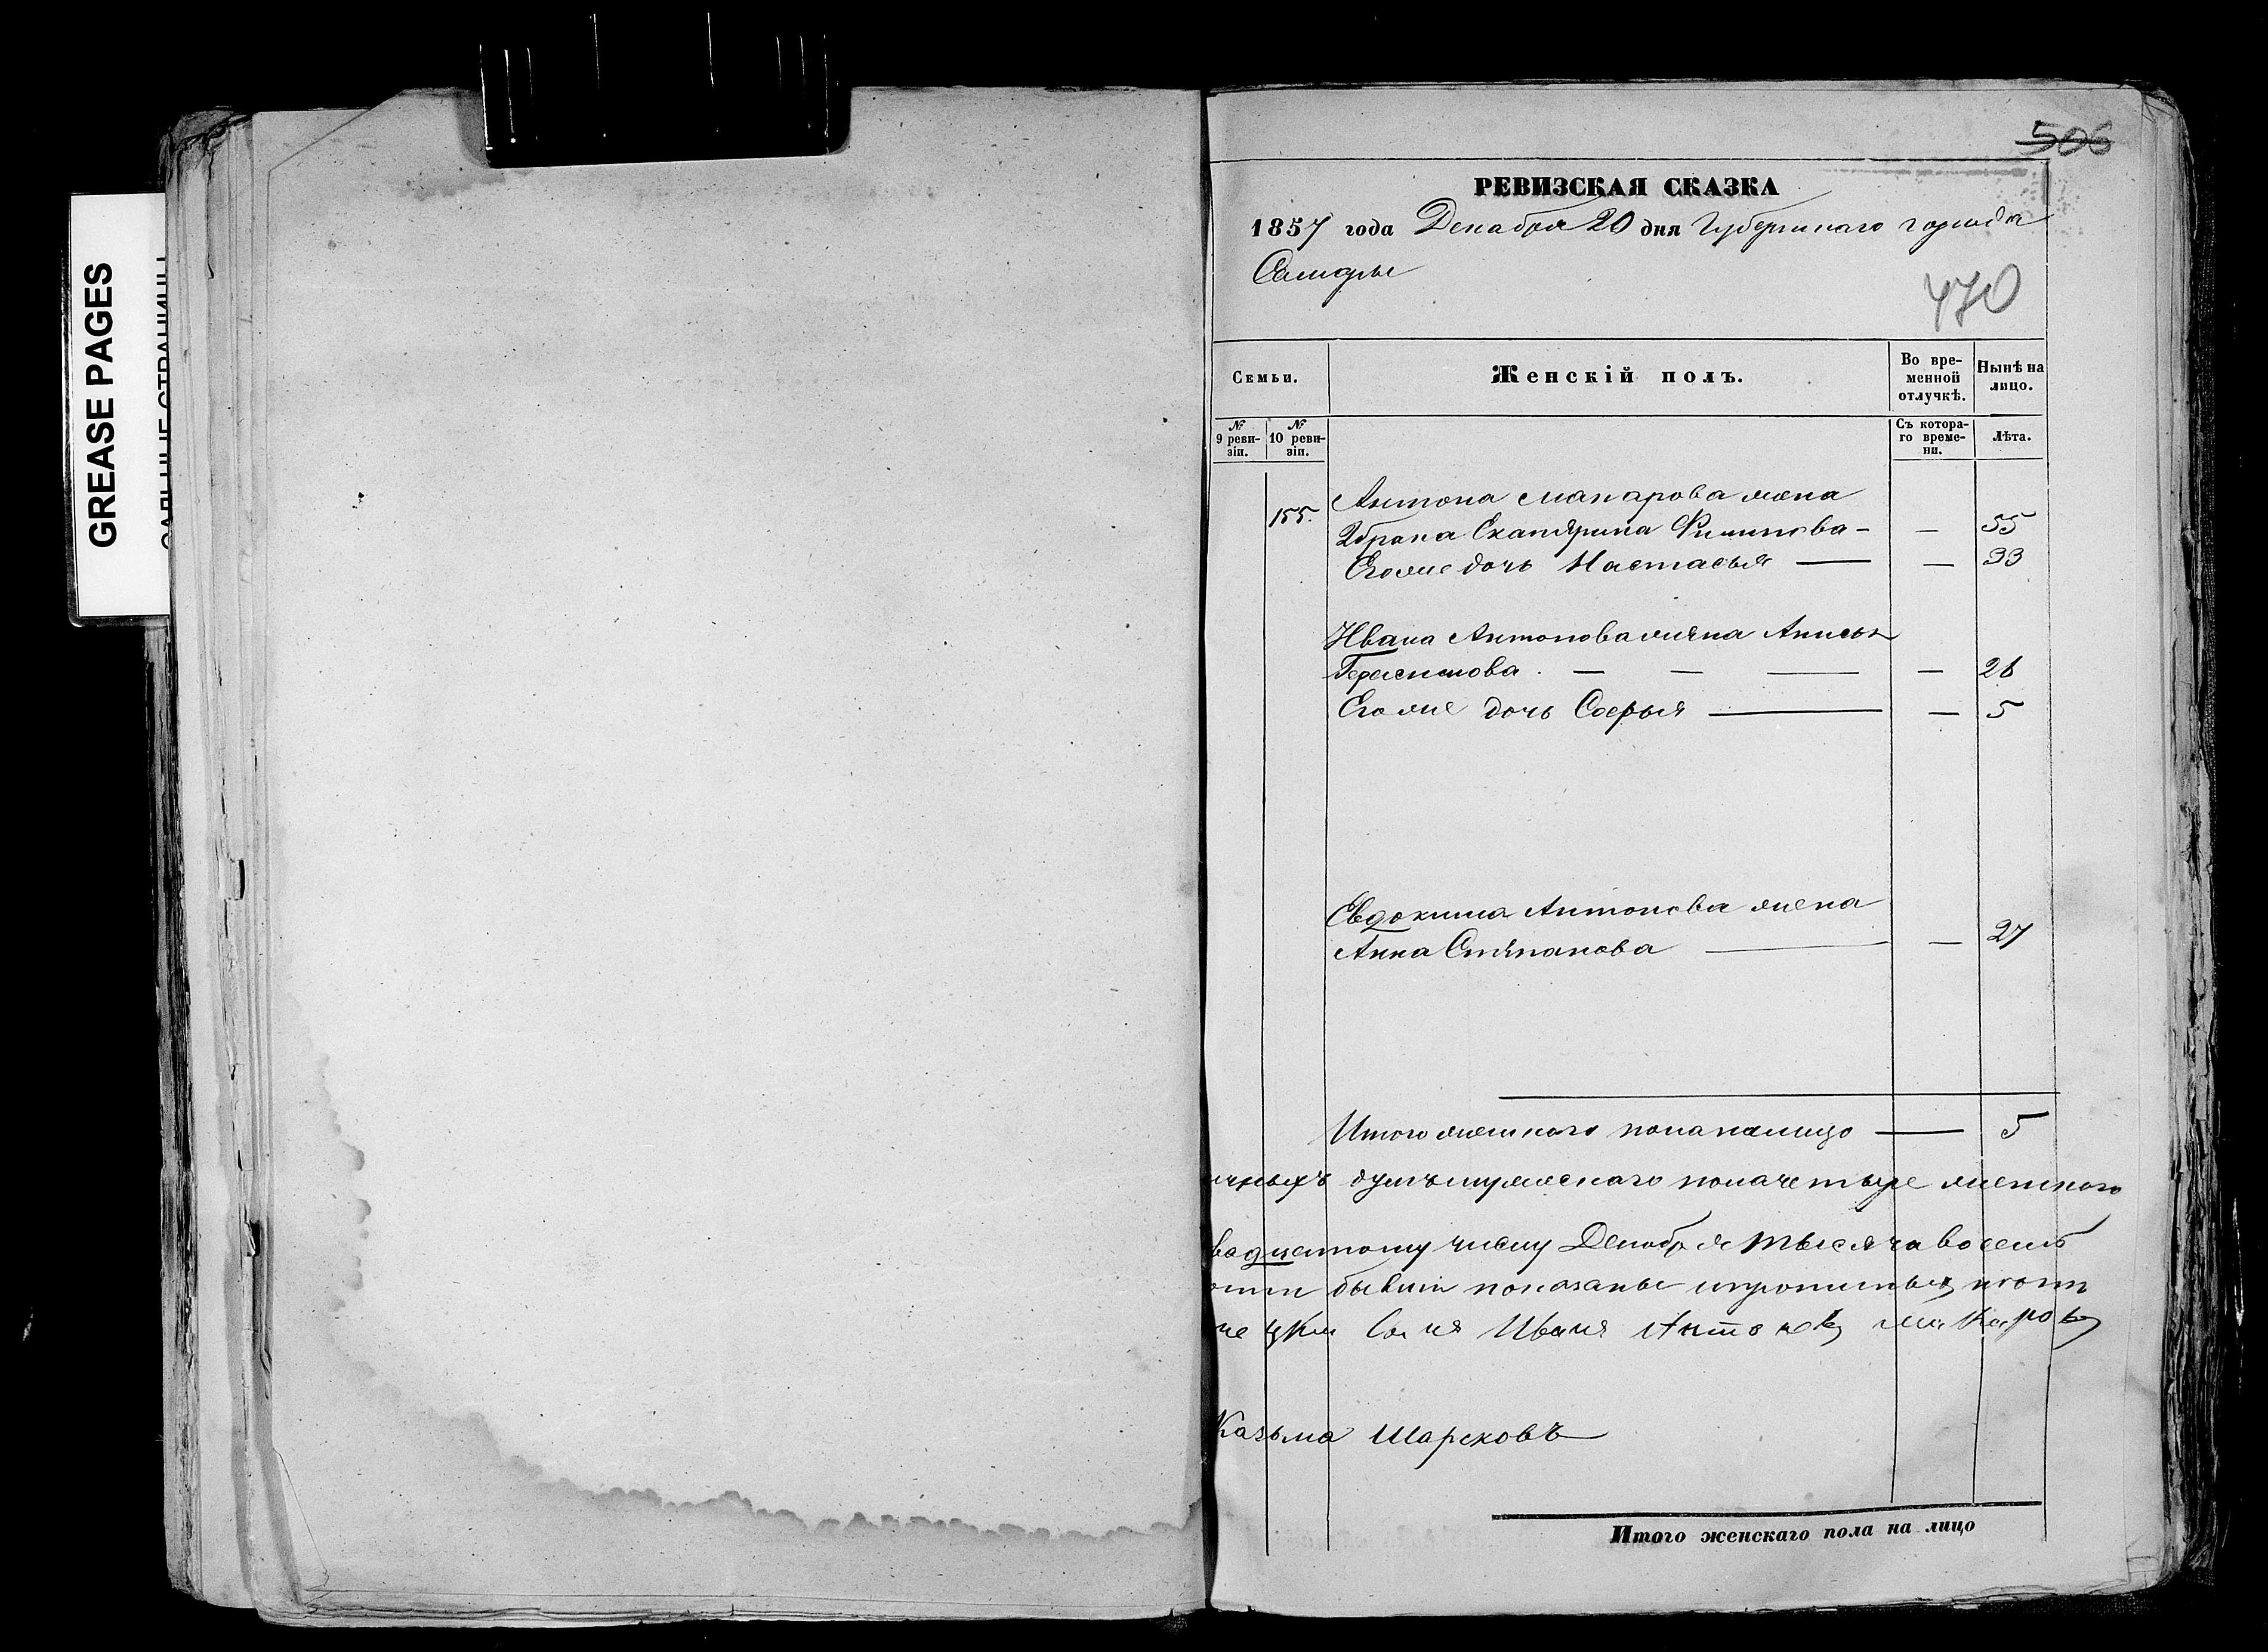 GREASE PAGES
506
РЕВИЗСКАЯ СКАЗКА
1857 года Декабря 20 дня Губернскаго города
Самары
470
Семьи.
Женскій полъ.
Во вре-
менной
отлучкѣ.
Нынѣ на
лицо.
№
9 реви-
зіи.
№
10 реви-
зіи.
Съ котора-
го време-
ни.
Лѣта.
155.
Антона Макарова жена
2 брака Екатерина Филипова — — 55
Его же дочь Настасья — — 33
Ивана Антонова жена Анисья
Герасимова . — — — — 26
Его же дочь Софья — — 5
Евдокима Антонова жена
Анна Степанова — — 27
Итого женскаго пола налицо — 5
душъ мужескаго пола четыре женскаго
двадцатому числу Декабря тысяча восемь
бывши показаны
Иванъ Антоновъ Макаровъ
Казьма Шарсковъ
Итого женскаго пола на лицо